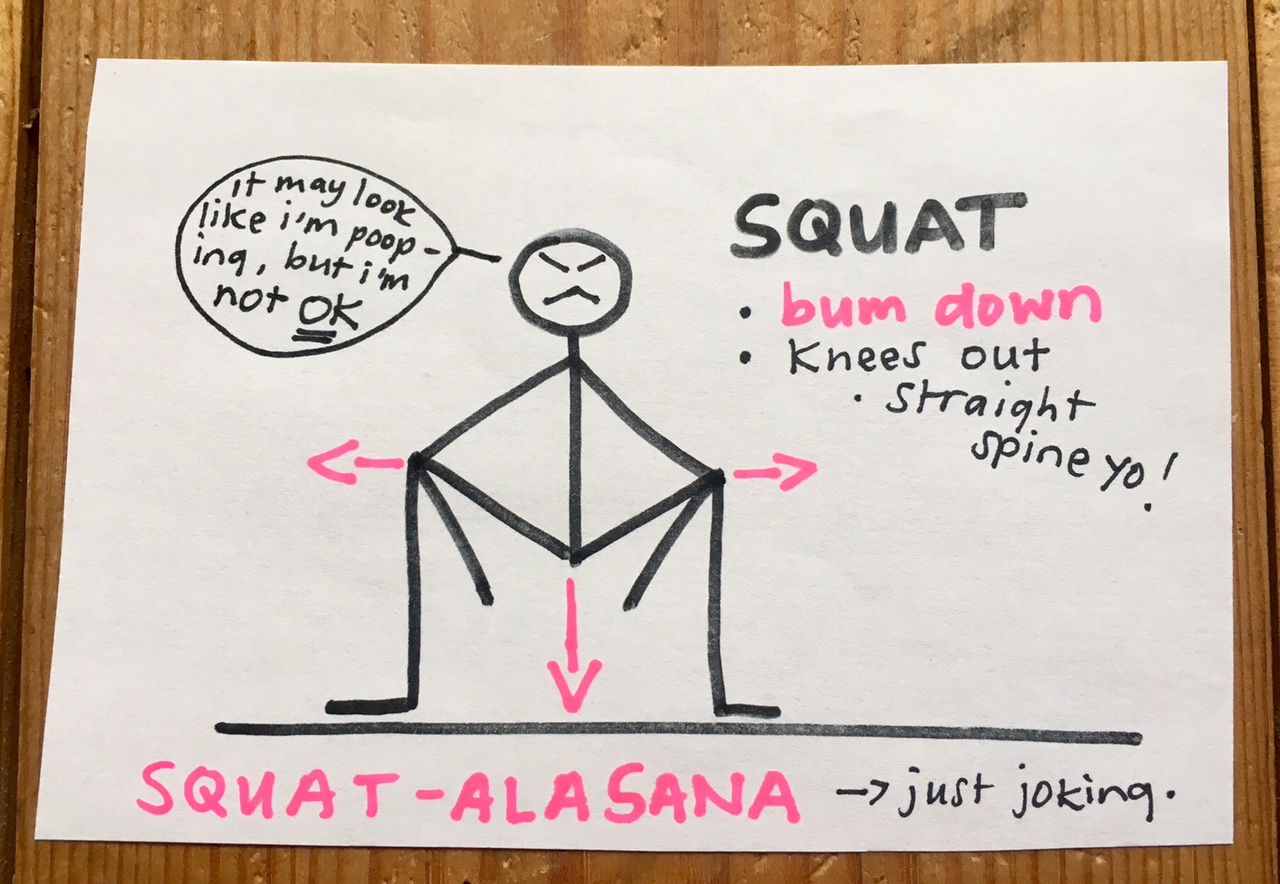 it may look
like i'm poop-
ing, but i'm
not OK
SQUAT
• bum down
• Knees out
• straight
spine yo!
SQUAT-ALASANA → just joking.